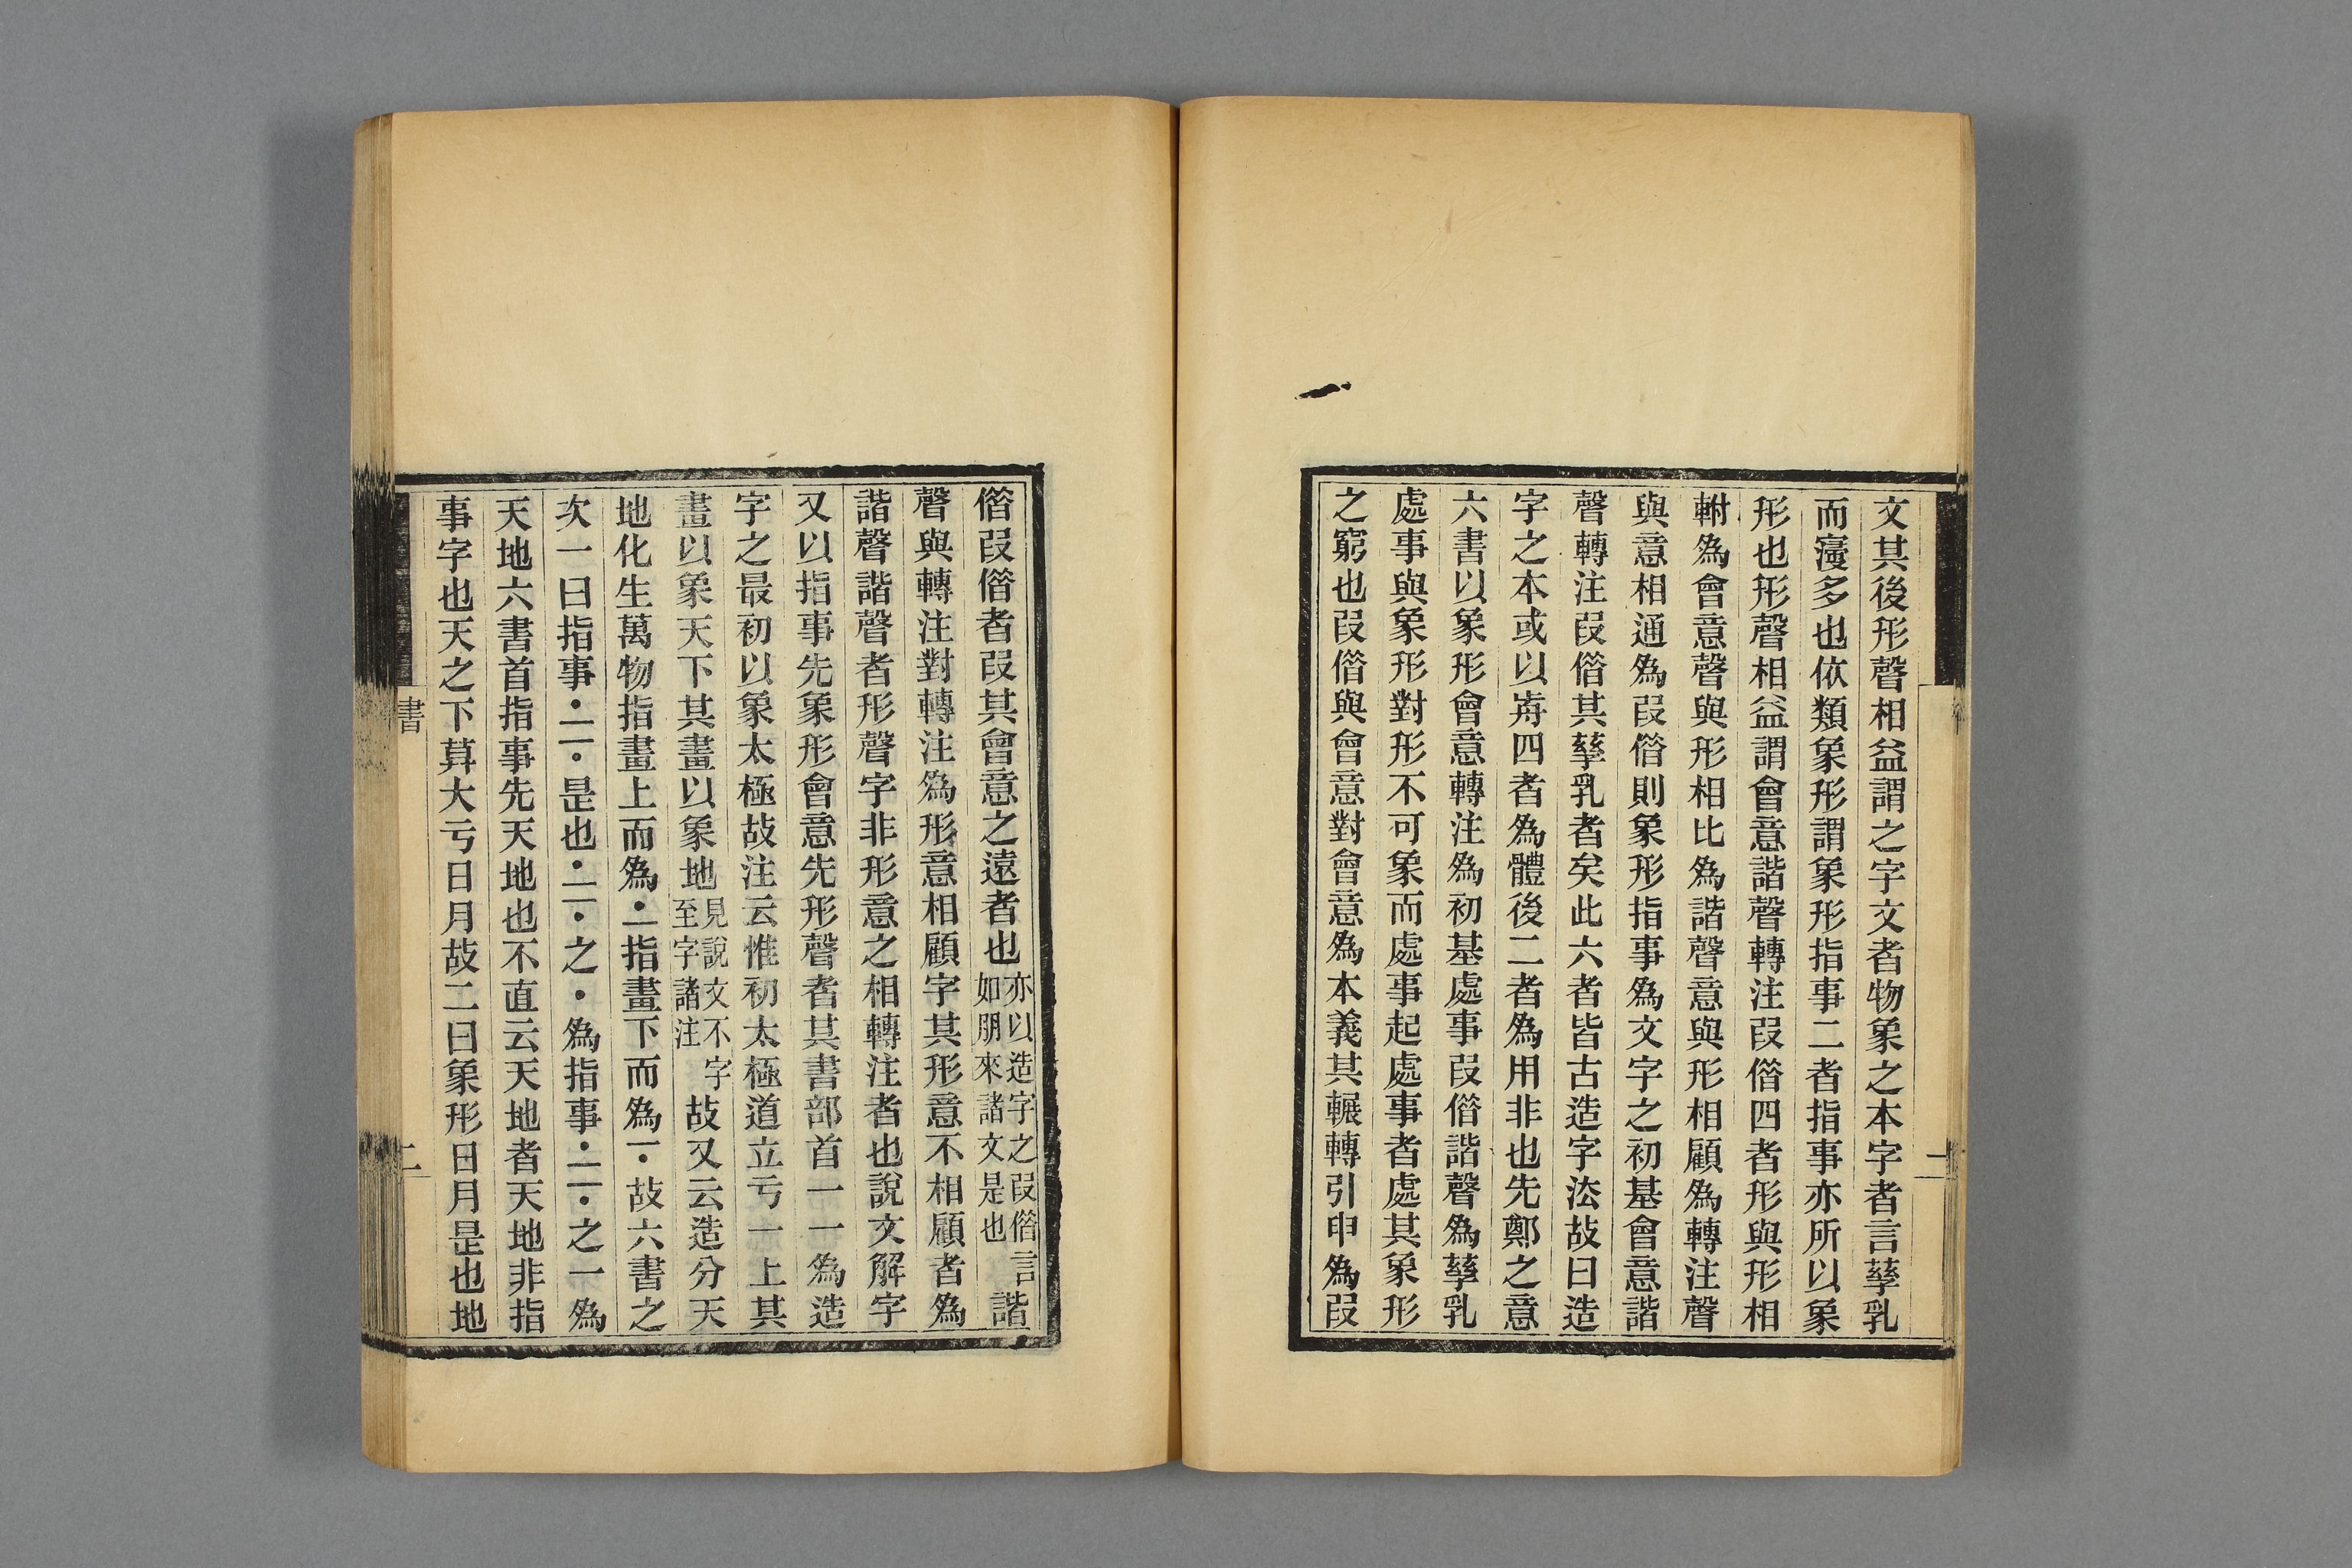 文其後形聲相益謂之字文者物象之本字者言孳乳
而寖多也依類象形謂象形指事二者指事亦所以象
形也形聲相益謂會意諧聲轉注叚借四者形與形相
軵為會意聲與形相比為諧聲意與形相顧為轉注聲
與意相通為叚借則象形指事為文字之初基會意諧
聲轉注叚借其孳乳者矣此六者皆古造字法故曰造
字之本或以歬四者為體後二者為用非也先鄭之意
六書以象形會意轉注為初基處事叚借諧聲為孳乳
處事與象形對形不可象而處事起處事者處其象形
之窮也叚借與會意對會意為本義其輾轉引申為叚
二
借叚借者叚其會意之遠者也亦以造字之叚借言如朋來諸文是也諧
聲與轉注對轉注為形意相顧字其形意不相顧者為
諧聲諧聲者形聲字非形意之相轉注者也說文解字
又以指事先象形會意先形聲者其書部首一一為造
字之最初以象太極故注云惟初太極道立亏一上其
畫以象天下其畫以象地見說文不字至字諸注故又云造分天
地化生萬物指畫上而為·二指畫下而為一·故六書之
次一曰指事·二二·是也·二二·之·為指事·二二·之一為
天地六書首指事先天地也不直云天地者天地非指
事字也天之下算大亏日月故二曰象形日月是也地
書
二